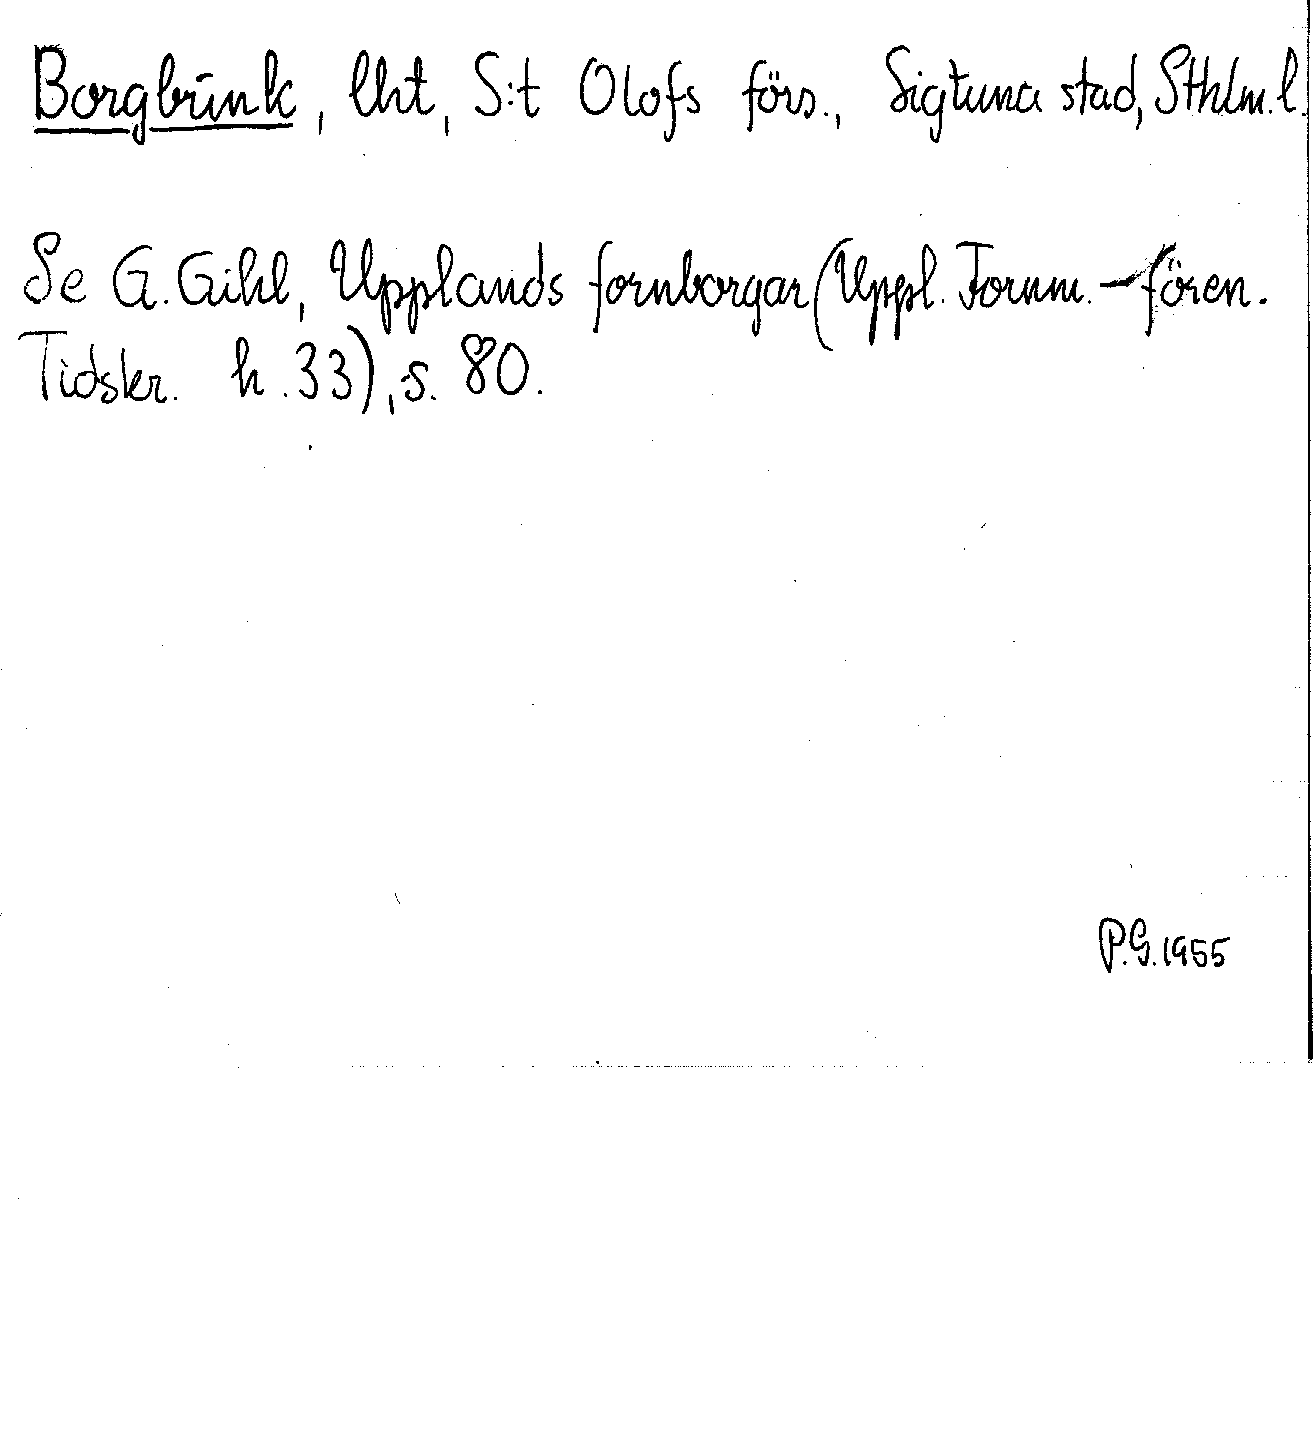 Borgbrink, lht, S:t Olofs förs., Sigtuna stad, Sthlm.l.
Se G. Gihl, Upplands fornborgar (Uppl. Fornm.-fören.
Tidskr. h.33), s. 80.
P.G.1955